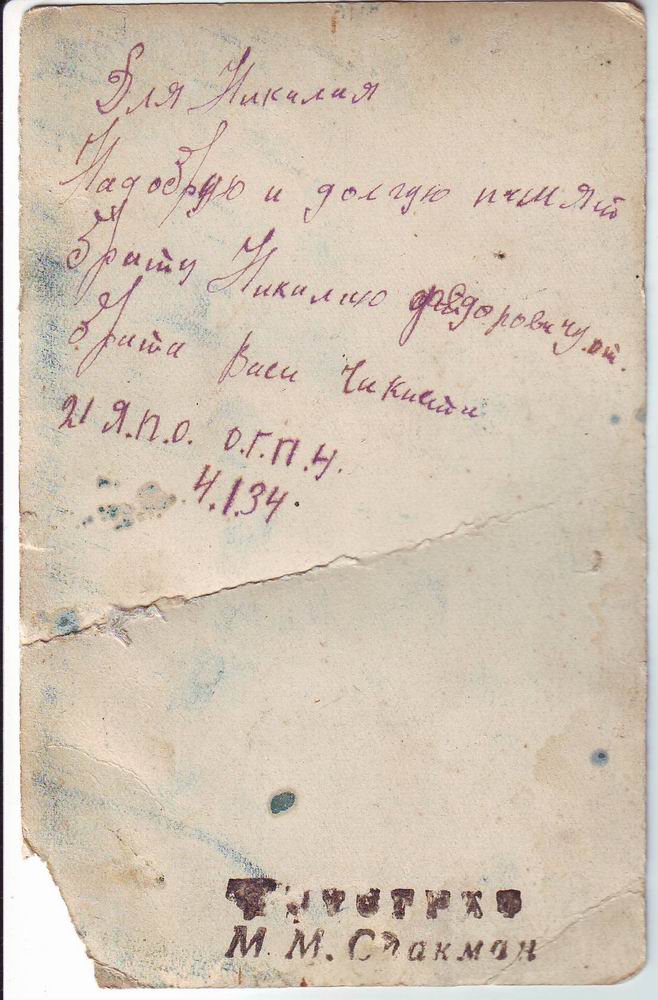 Для Николая
Надобрую и долгую памят
Брату Николаю Федоровичу от.
брата Васи Чикисти
21 Я.П.О. О.Г.П.У.
4.1.34.
Фотограф
М. М.